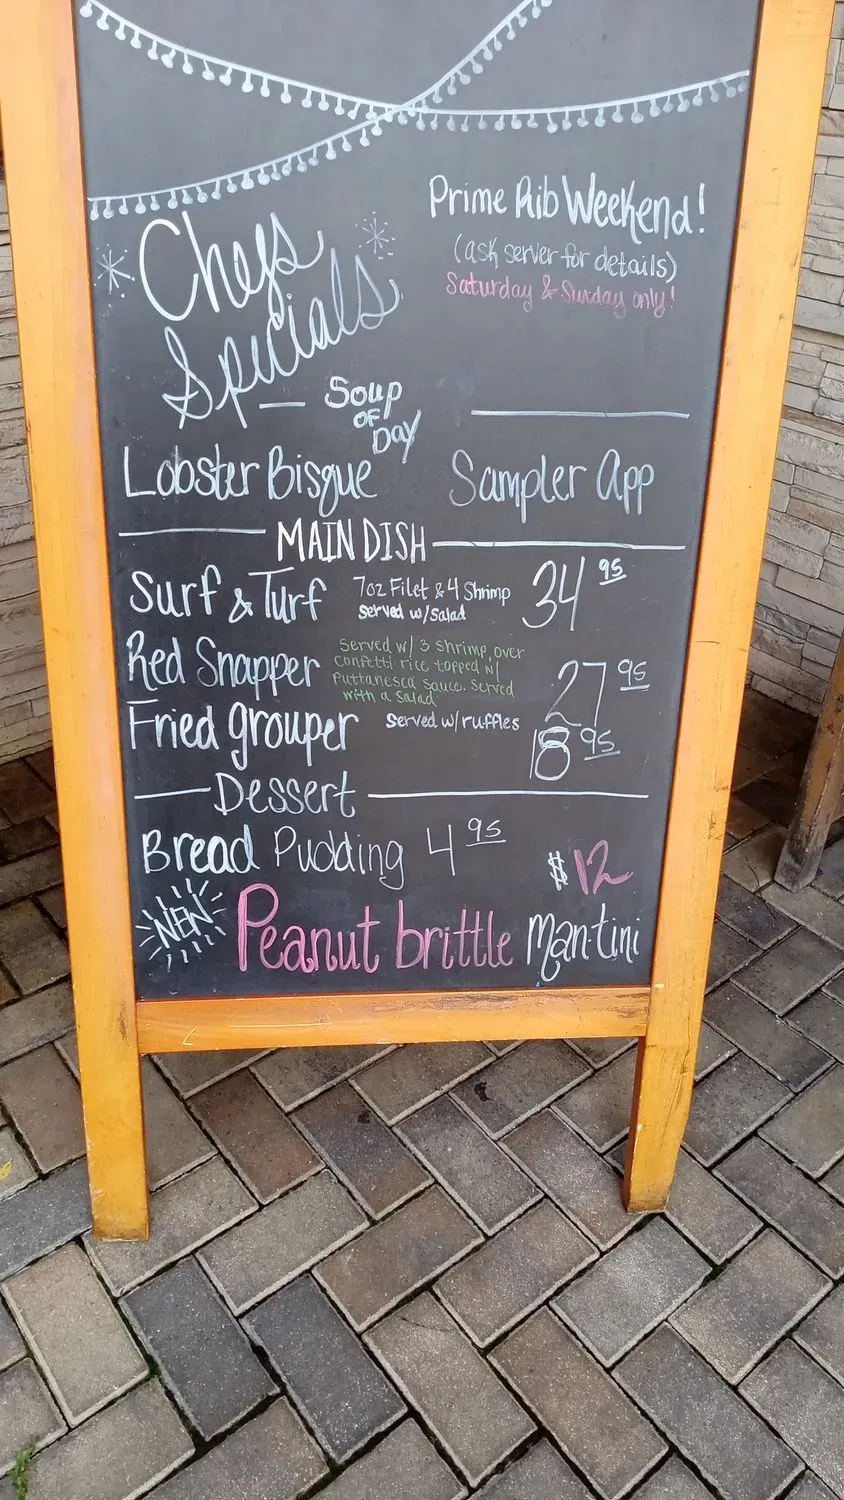 Prime Rib Weekend!
(ask server for details)
Saturday & Sunday only!
Chefs
Specials
Soup
of
Day
Lobster Bisque
Sampler App
MAIN DISH
Surf & Turf 7oz Filet & 4 Shrimp 34 95
served w/salad
Red Snapper Served w/ 3 Shrimp, over
confetti rice topped w/
puttanesca sauce. Served
with a salad
27 95
Fried grouper Served w/ruffles 18 95
Dessert
Bread Pudding 4 95
$12
NEW Peanut brittle Mantini